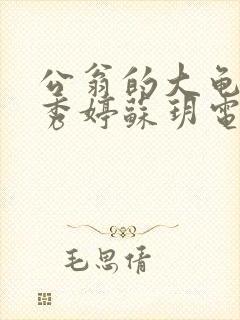 公翁的大龟
秀婷蘇玥電
毛思倩